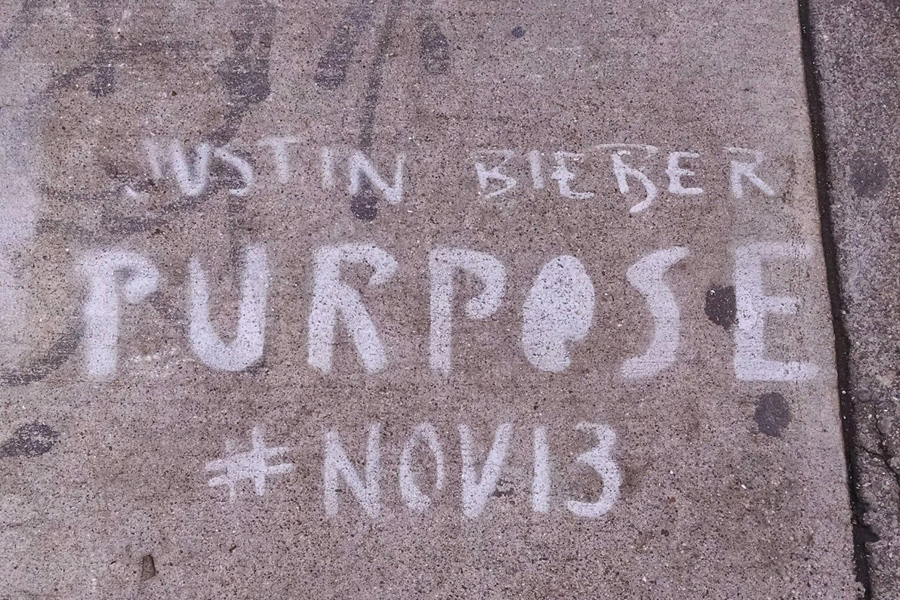 JUSTIN BIEBER
PURPOSE
#NOV13